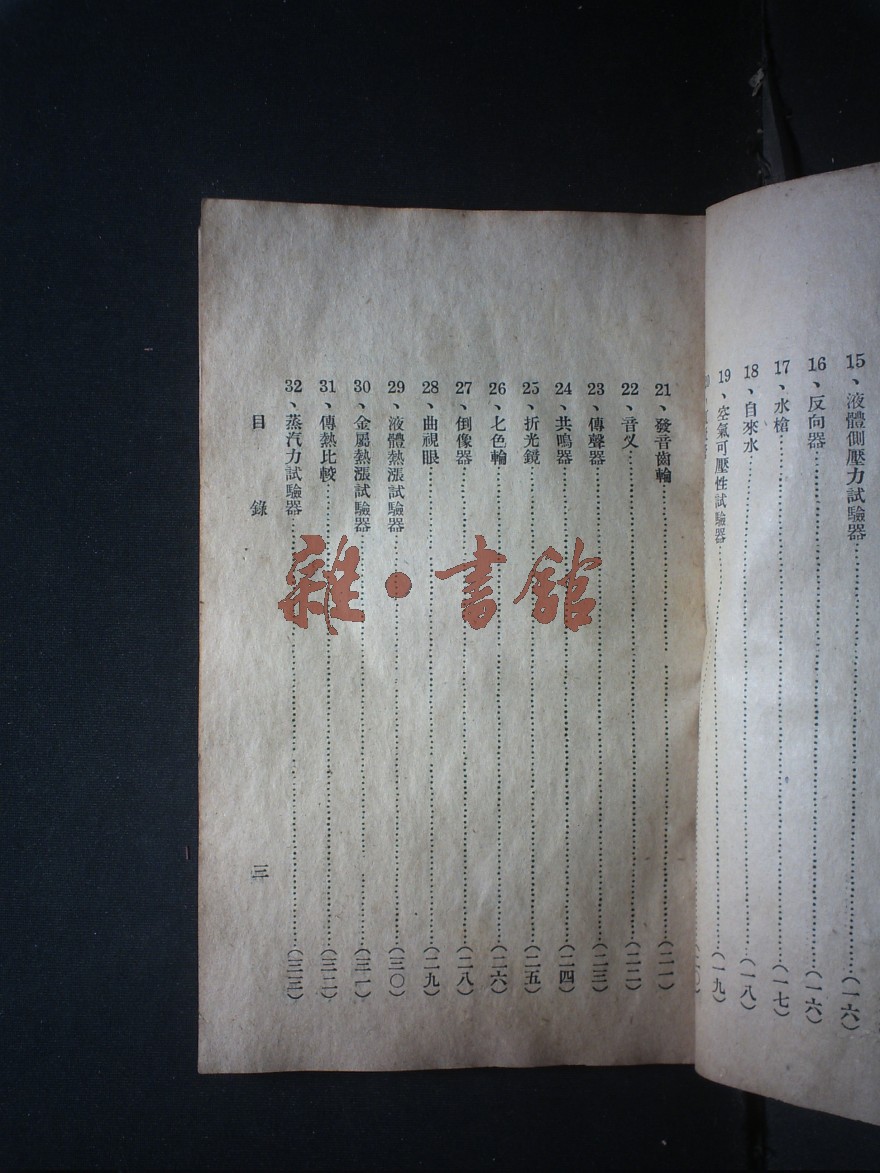 15、液體側壓力試驗器……(一六)
16、反向器……(一六)
17、水槍……(一七)
18、自來水……(一八)
19、空氣可壓性試驗器……(一九)
21、發音齒輪……(二一)
22、音义……(二二)
23、傳聲器……(二三)
24、共鳴器……(二四)
25、折光鏡……(二五)
26、七色輪……(二六)
27、倒像器……(二八)
28、曲視眼……(二九)
29、液體熱漲試驗器……(三〇)
30、金屬熱漲試驗器……(三一)
31、傳熱比較……(三二)
32、蒸汽力試驗器……(三三)
目錄 三
雜·書館